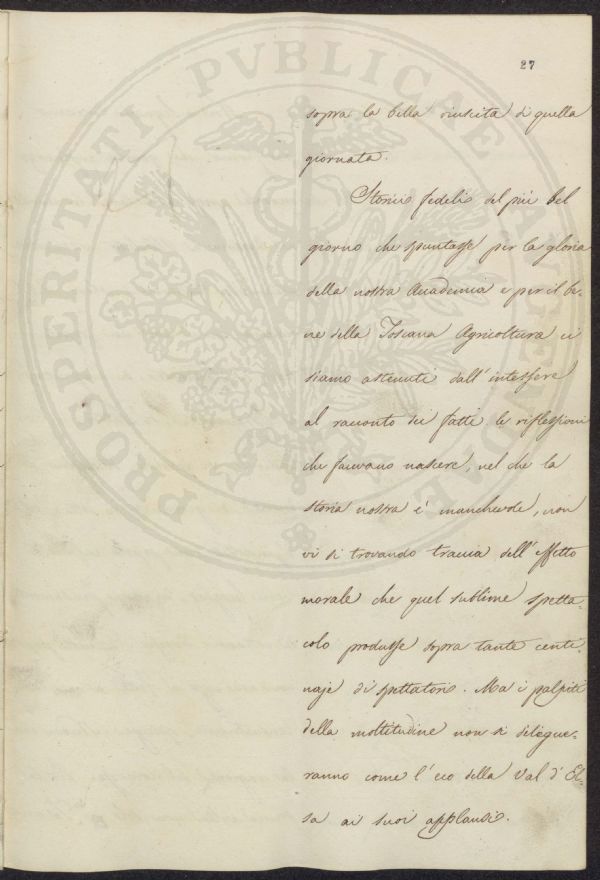 27
sopra la bella riuscita di quella
giornata.
Storici fedeli del più bel
giorno che spuntasse per la gloria
della nostra Accademia e per il be-
ne della Toscana Agricoltura ci
siamo astenuti dall'intessere
al racconto dei fatti le riflessioni
che facevano nascere, nel che la
storia nostra è manchevole, non
vi si trovando traccia dell'effetto
morale che quel sublime spetta-
colo produsse sopra tante centi-
naje di spettatori. Ma i palpiti
della moltitudine non si dilegue-
ranno come l'eco della Val d'El-
sa ai suoi applausi.
PROSPERITATI PVBLICAE AVGENDAE